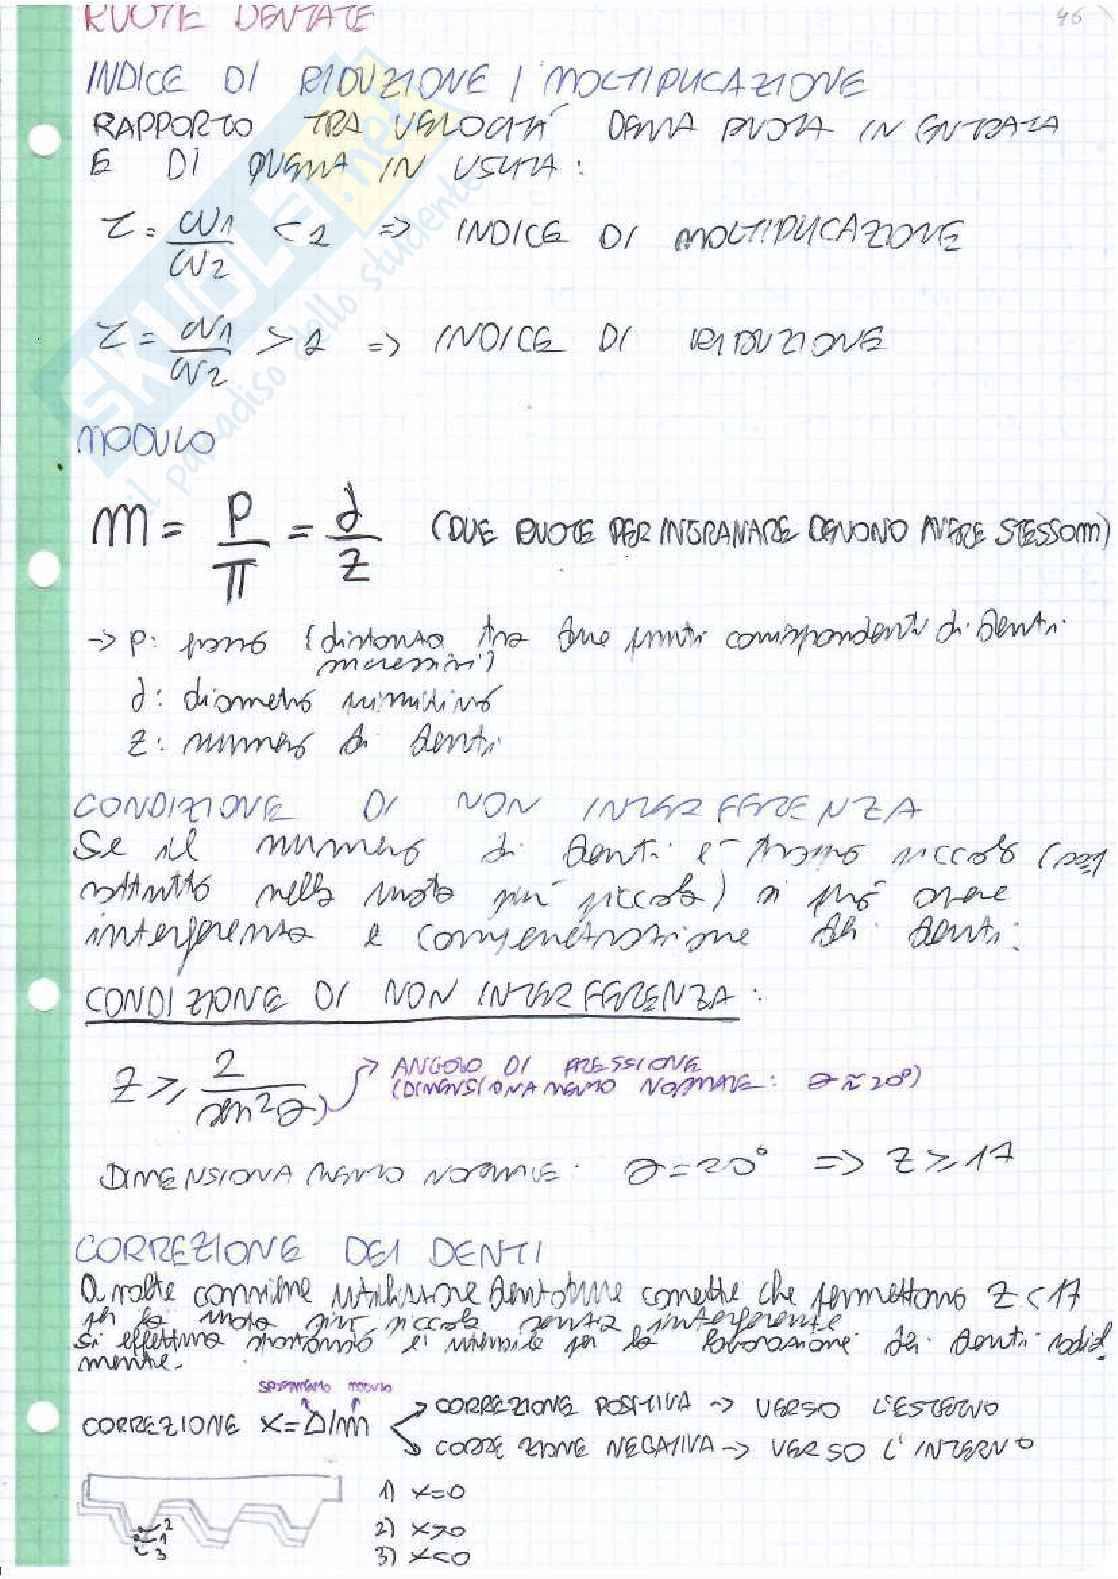 RUOTE DENTATE
46
INDICE DI RIDUZIONE / MOLTIPLICAZIONE
RAPPORTO TRA VELOCITÀ DELLA RUOTA IN ENTRATA
E DI QUELLA IN USCITA:
τ = ω1/ω2 < 1 => INDICE DI MOLTIPLICAZIONE
τ = ω1/ω2 > 1 => INDICE DI RIDUZIONE
SKUOLA.net
il paradiso dello studente
MODULO
m = p/π = d/z (DUE RUOTE PER INGRANARE DEVONO AVERE STESSO m)
-> p: passo (distanza tra due punti corrispondenti di denti
successivi)
d: diametro primitivo
z: numero di denti
CONDIZIONE DI NON INTERFERENZA
Se il numero di denti è troppo piccolo (sop
rattutto nella ruota più piccola) si può avere
interferenza e compenetrazione dei denti.
CONDIZIONE DI NON INTERFERENZA:
z ≥ 2/sen²θ
ANGOLO DI PRESSIONE
(DIMENSIONAMENTO NORMALE: θ ≈ 20°)
DIMENSIONAMENTO NORMALE: θ = 20° => z ≥ 17
CORREZIONE DEI DENTI
A volte conviene utilizzare dentature corrette che permettono z < 17
per la ruota più piccola senza interferenze
Si effettua spostando l'utensile per la lavorazione dei denti radial
mente.
SPOSTAMENTO MODULO
CORREZIONE x = Δ/m
CORREZIONE POSITIVA -> VERSO L'ESTERNO
CORREZIONE NEGATIVA -> VERSO L'INTERNO
1) x=0
2) x>0
3) x<0
2
1
3